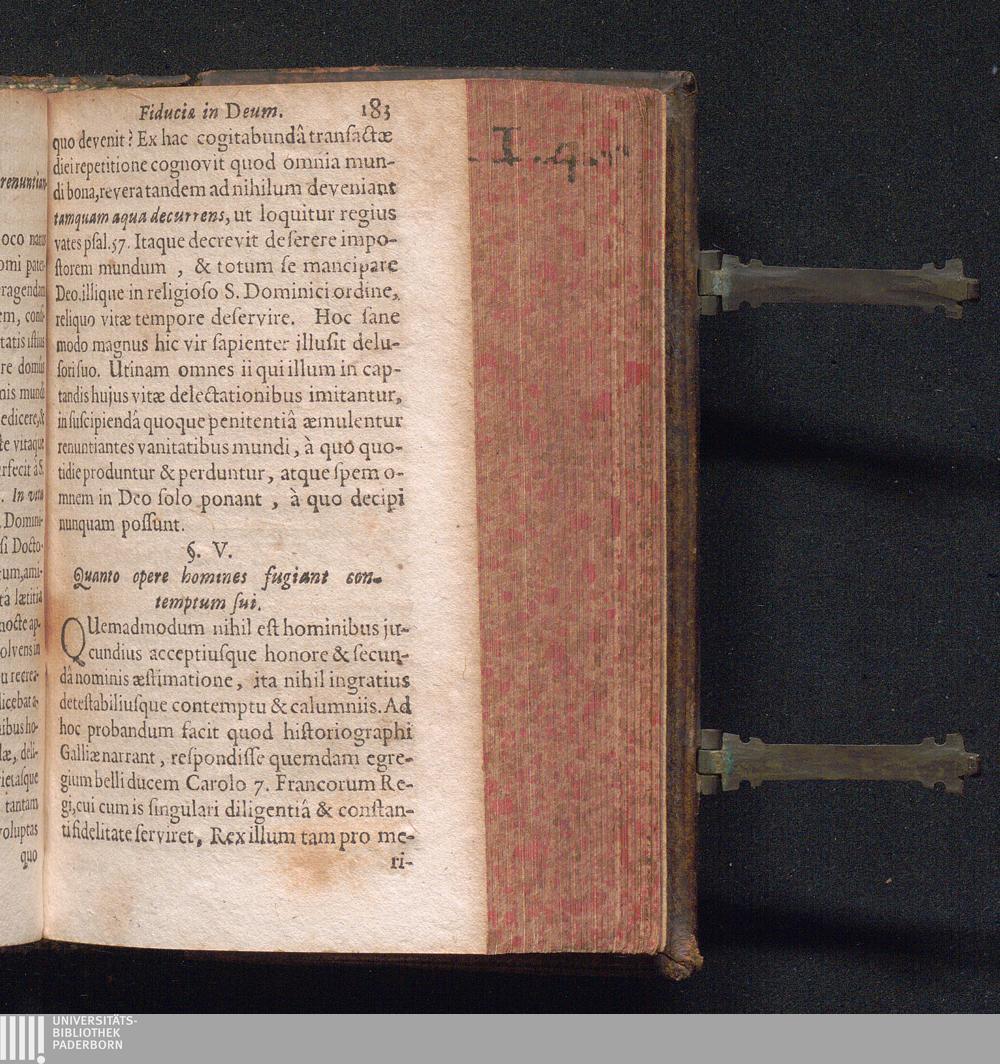 Fiducia in Deum. 183
quo devenit? Ex hac cogitabundâ transactæ
diei repetitione cognovit quod omnia mun-
di bona, revera tandem ad nihilum deveniant
tamquam aqua decurrens, ut loquitur regius
vates psal. 57. Itaque decrevit deserere impo-
storem mundum , & totum se mancipare
Deo, illique in religioso S. Dominici ordine,
reliquo vitæ tempore deservire. Hoc sane
modo magnus hic vir sapienter illusit delu-
sori suo. Utinam omnes ii qui illum in cap-
tandis hujus vitæ delectationibus imitantur,
in suscipiendâ quoque penitentiâ æmulentur
renuntiantes vanitatibus mundi, à quo quo-
tidie produntur & perduntur, atque spem o-
mnem in Deo solo ponant , à quo decipi
nunquam possunt.
§. V.
Quanto opere homines fugiant con-
temptum sui.
QUemadmodum nihil est hominibus ju-
cundius acceptiusque honore & secun-
dâ nominis æstimatione, ita nihil ingratius
detestabiliusque contemptu & calumniis. Ad
hoc probandum facit quod historiographi
Galliæ narrant, respondisse quemdam egre-
gium belli ducem Carolo 7. Francorum Re-
gi, cui cum is singulari diligentiâ & constan-
ti fidelitate serviret, Rex illum tam pro me-
ri-
renuntian
oco natus
omi pater-
eragendam
tatis istius
re domus
nis mundi
edicere, &
te vitaque
rfecit à S.
. In vita
. Domini-
si Docto-
um, ami-
tâ lætitiâ
nocte ap-
olvens in
u recrea-
licebat a-
nibus ho-
læ, deli-
rietasque
tantam
voluptas
quo
UNIVERSITÄTS-
BIBLIOTHEK
PADERBORN